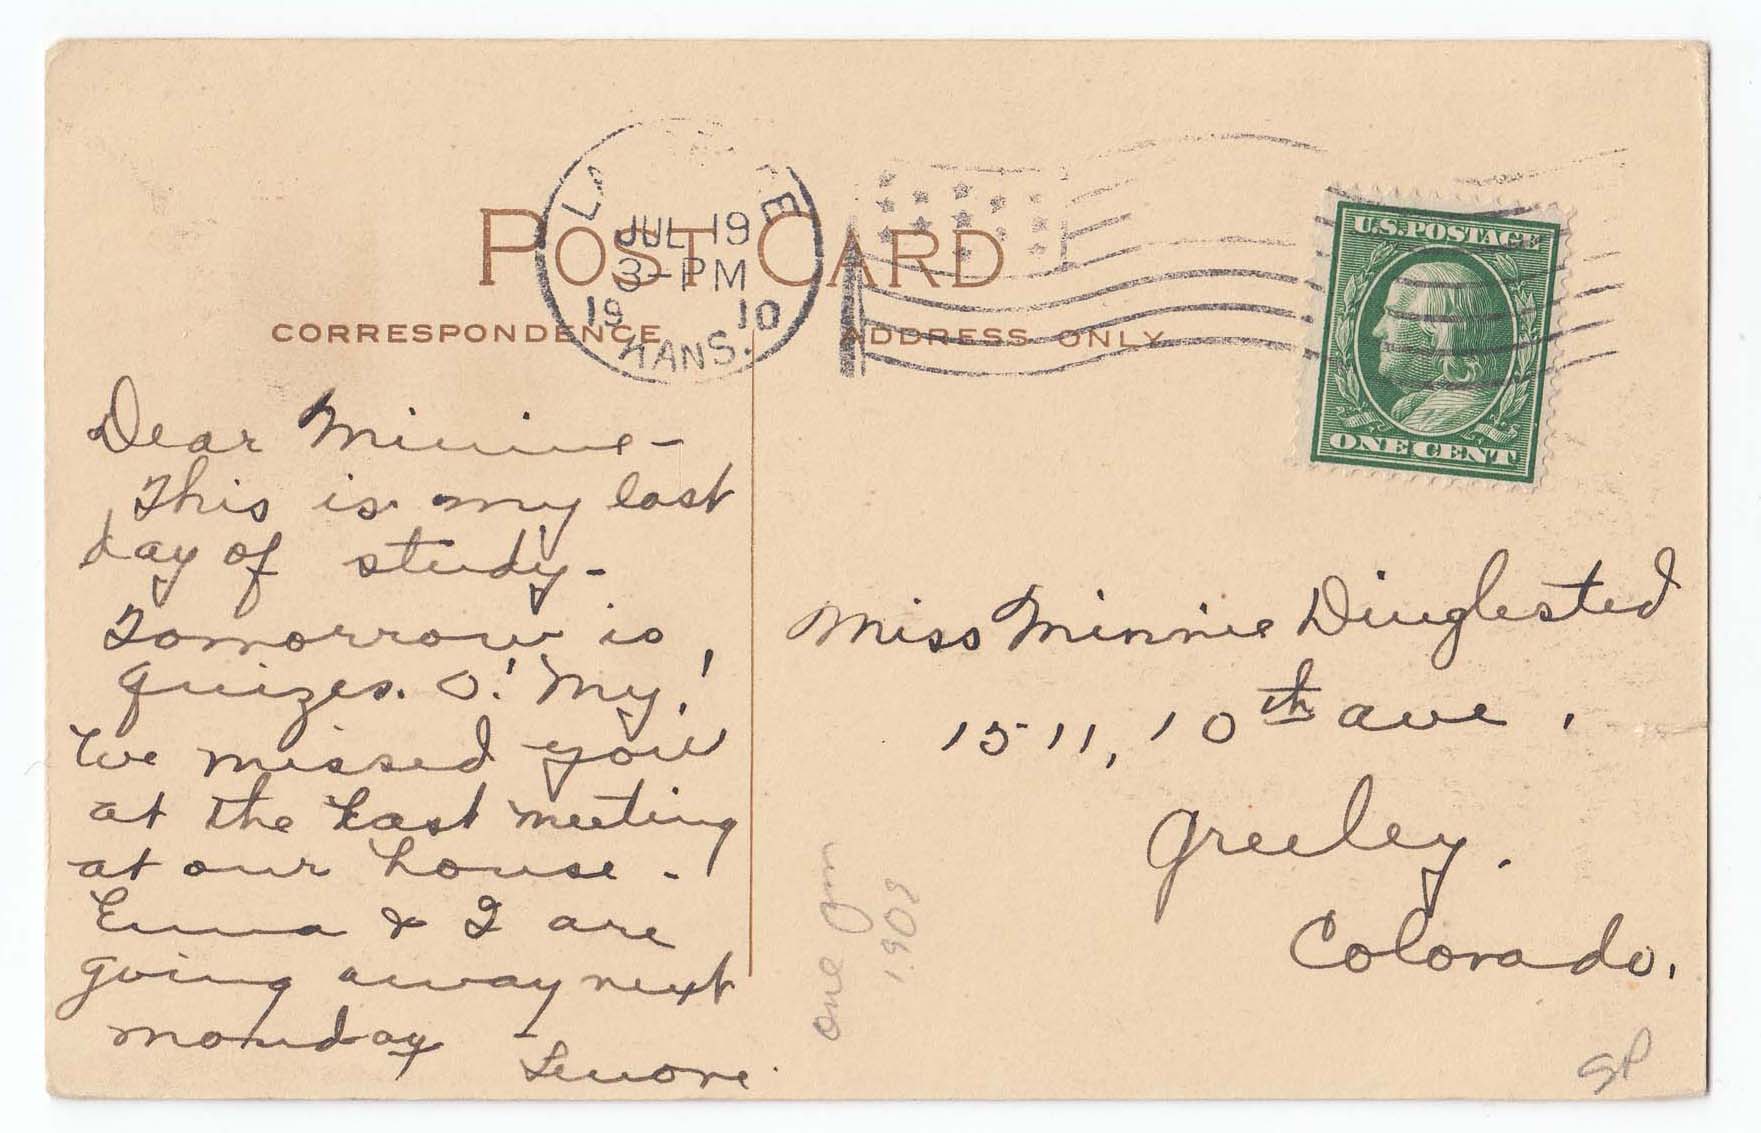 POST CARD
CORRESPONDENCE
ADDRESS ONLY
LA E
JUL 19
3-PM
19 10
KANS.
U.S. POSTAGE
ONE CENT
Dear Minnie-
This is my last
day of study-
Tomorrow is
quizes. O! My!
We missed you
at the last meeting
at our house-
Emma & I are
going away next
monday -
Lenore
Miss Minnie Dinglested
1511, 10th ave,
Greeley.
Colorado.
one
190